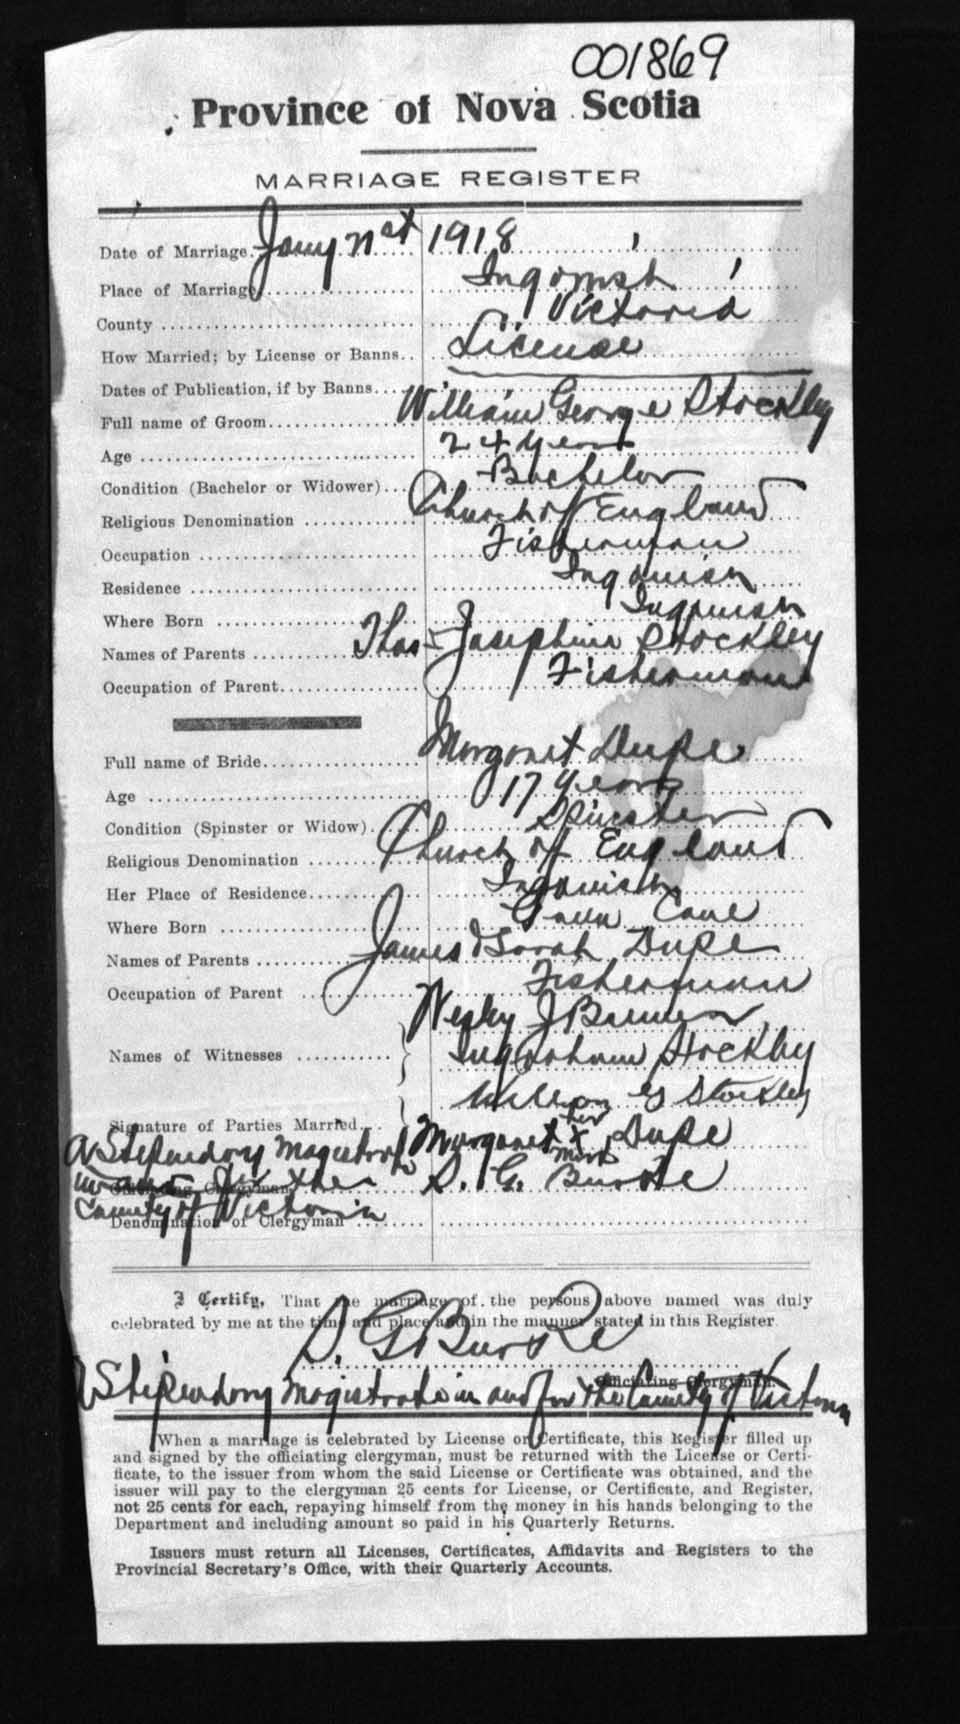 001869
Province of Nova Scotia
MARRIAGE REGISTER
Date of Marriage. Jany 21st 1918
Place of Marriage Ingonish
County Victoria
How Married; by License or Banns.. License
Dates of Publication, if by Banns
Full name of Groom William George Stockley
Age 24 years
Condition (Bachelor or Widower) Bachelor
Religious Denomination Church of England
Occupation Fisherman
Residence Ingonish
Where Born Ingonish
Names of Parents Thos & Josephine Stockley
Occupation of Parent Fisherman
Full name of Bride Margaret Dupe
Age 17 years
Condition (Spinster or Widow). Spinster
Religious Denomination Church of England
Her Place of Residence Ingonish
Where Born Cove
Names of Parents James & Sarah Dupe
Occupation of Parent Fisherman
Wesley J
Names of Witnesses Stockley
William G Stockley
Signature of Parties Married Margaret her X mark Dupe
A Stipendary Magistrate
in and for the Officiating Clergyman D. G. Burke
County of Victoria
Denomination of Clergyman
I Certify, That the marriage of the persons above named was duly
celebrated by me at the time and place and in the manner stated in this Register.
D. G Burke
Officiating Clergyman.
A Stipendary Magistrate in and for the County of Victoria
When a marriage is celebrated by License or Certificate, this Register filled up
and signed by the officiating clergyman, must be returned with the License or Certi-
ficate, to the issuer from whom the said License or Certificate was obtained, and the
issuer will pay to the clergyman 25 cents for License, or Certificate, and Register,
not 25 cents for each, repaying himself from the money in his hands belonging to the
Department and including amount so paid in his Quarterly Returns.
Issuers must return all Licenses, Certificates, Affidavits and Registers to the
Provincial Secretary's Office, with their Quarterly Accounts.